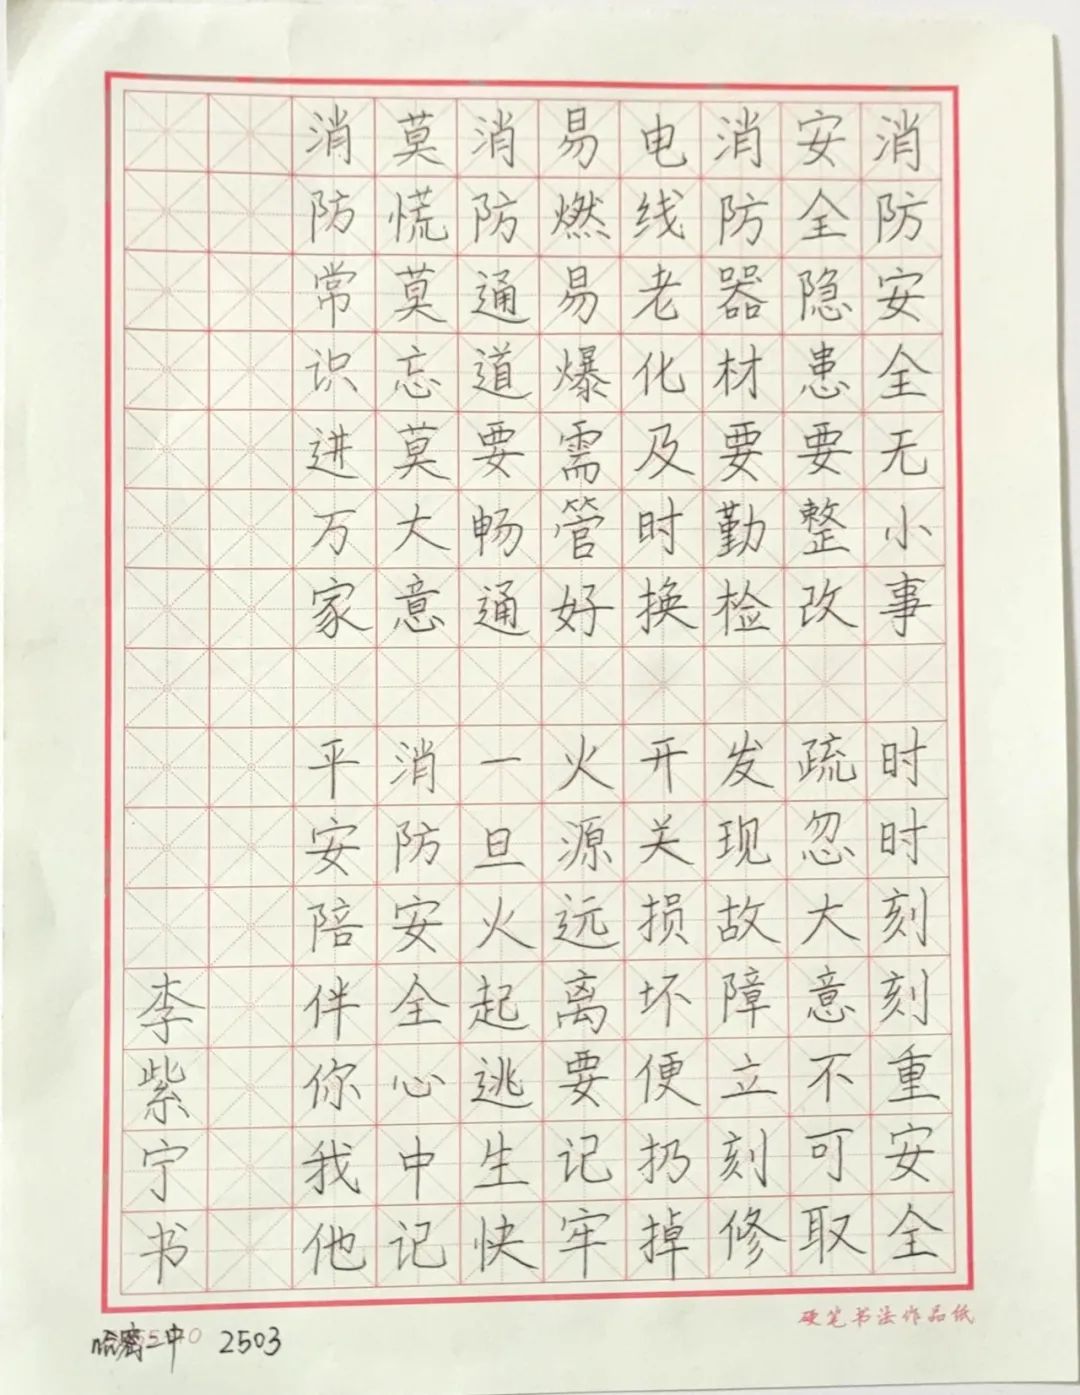 消防安全无小事 时时刻刻重安全
安全隐患要整改 疏忽大意不可取
消防器材要勤检 发现故障立刻修
电线老化及时换 开关损坏便扔掉
易燃易爆需管好 火源远离要记牢
消防通道要畅通 一旦火起逃生快
莫慌莫忘莫大意 消防安全心中记
消防常识进万家 平安陪伴你我他
李紫宁书
硬笔书法作品纸
哈密二中 2503